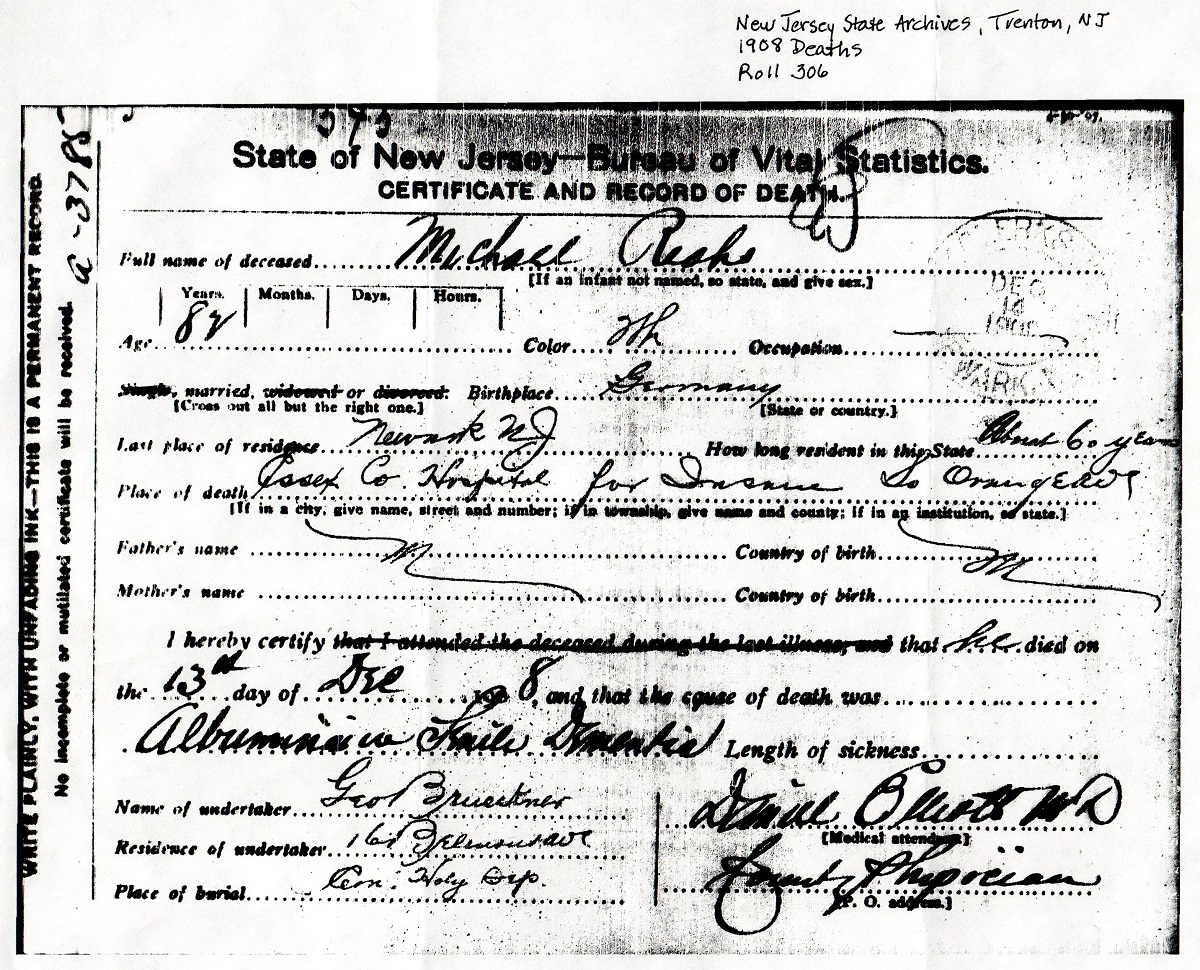 New Jersey State Archives, Trenton, NJ
1908 Deaths
Roll 306
WRITE PLAINLY, WITH UNFADING INK—THIS IS A PERMANENT RECORD.
No incomplete or mutilated certificate will be received.
a-3785
State of New Jersey—Bureau of Vital Statistics.
CERTIFICATE AND RECORD OF DEATH.
Full name of deceased Michael
[If an infant not named, so state, and give sex.]
Years. Months. Days. Hours.
Age 82 Color Wh Occupation
Single, married, widowed or divorced. Birthplace Germany
[Cross out all but the right one.] [State or country.]
Last place of residence Newark NJ How long resident in this State About 60 years
Place of death Essex Co Hospital for Insane So Orange Ave
[If in a city, give name, street and number; if in township, give name and county; if in an institution, so state.]
Father's name Country of birth
Mother's name Country of birth
I hereby certify that I attended the deceased during the last illness, and that he died on
the 13th day of Dec 190 8, and that the cause of death was
Albuminuria Senile Dementia Length of sickness
Name of undertaker Geo Brueckner
Residence of undertaker Belmont ave
Place of burial Cem. Holy Sep.
Daniel Elliott MD
[Medical attendant.]
County Physician
[P. O. address.]
DEC
14
1908